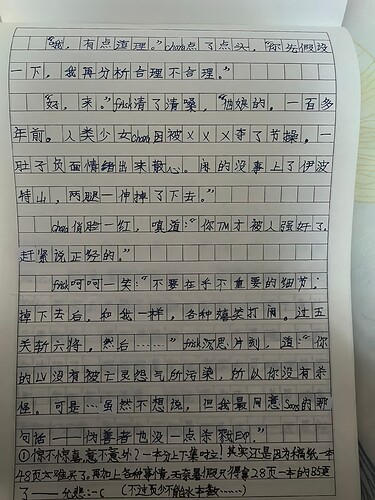 “哦，有点道理。”chara点了点头，“你先假设
一下，我再分析合理不合理。”
“好，来。”frisk清了清嗓，“假设的。一百多
年前。人类少女chara因被×××夺了节操。一
肚子负面情绪出来散心。闲的没事上了伊波
特山，两腿一伸掉了下去。”
chara俏脸一红，嗔道：“你TM才被人强奸了，
赶紧说正经的。”
frisk呵呵一笑：“不要在乎不重要的细节；
掉下去后，和我一样，各种嬉笑打闹。过五
关斩六将。然后……”frisk沉思片刻，道：“你
的LV没有被亡灵怨气所污染，所以你没有杀
怪。可是…虽然不想说，但我最同意Sans的那
句话——伪善者也没一点杀戮EXP。”
①惊不惊喜，意不意外？一本分上下集啦！其实还是因为稿纸一本
48页太难买了，再加上各种事情，无奈暑假只得拿28页一本的B5更
了——允悲:-C（不过页少不能水本数……）